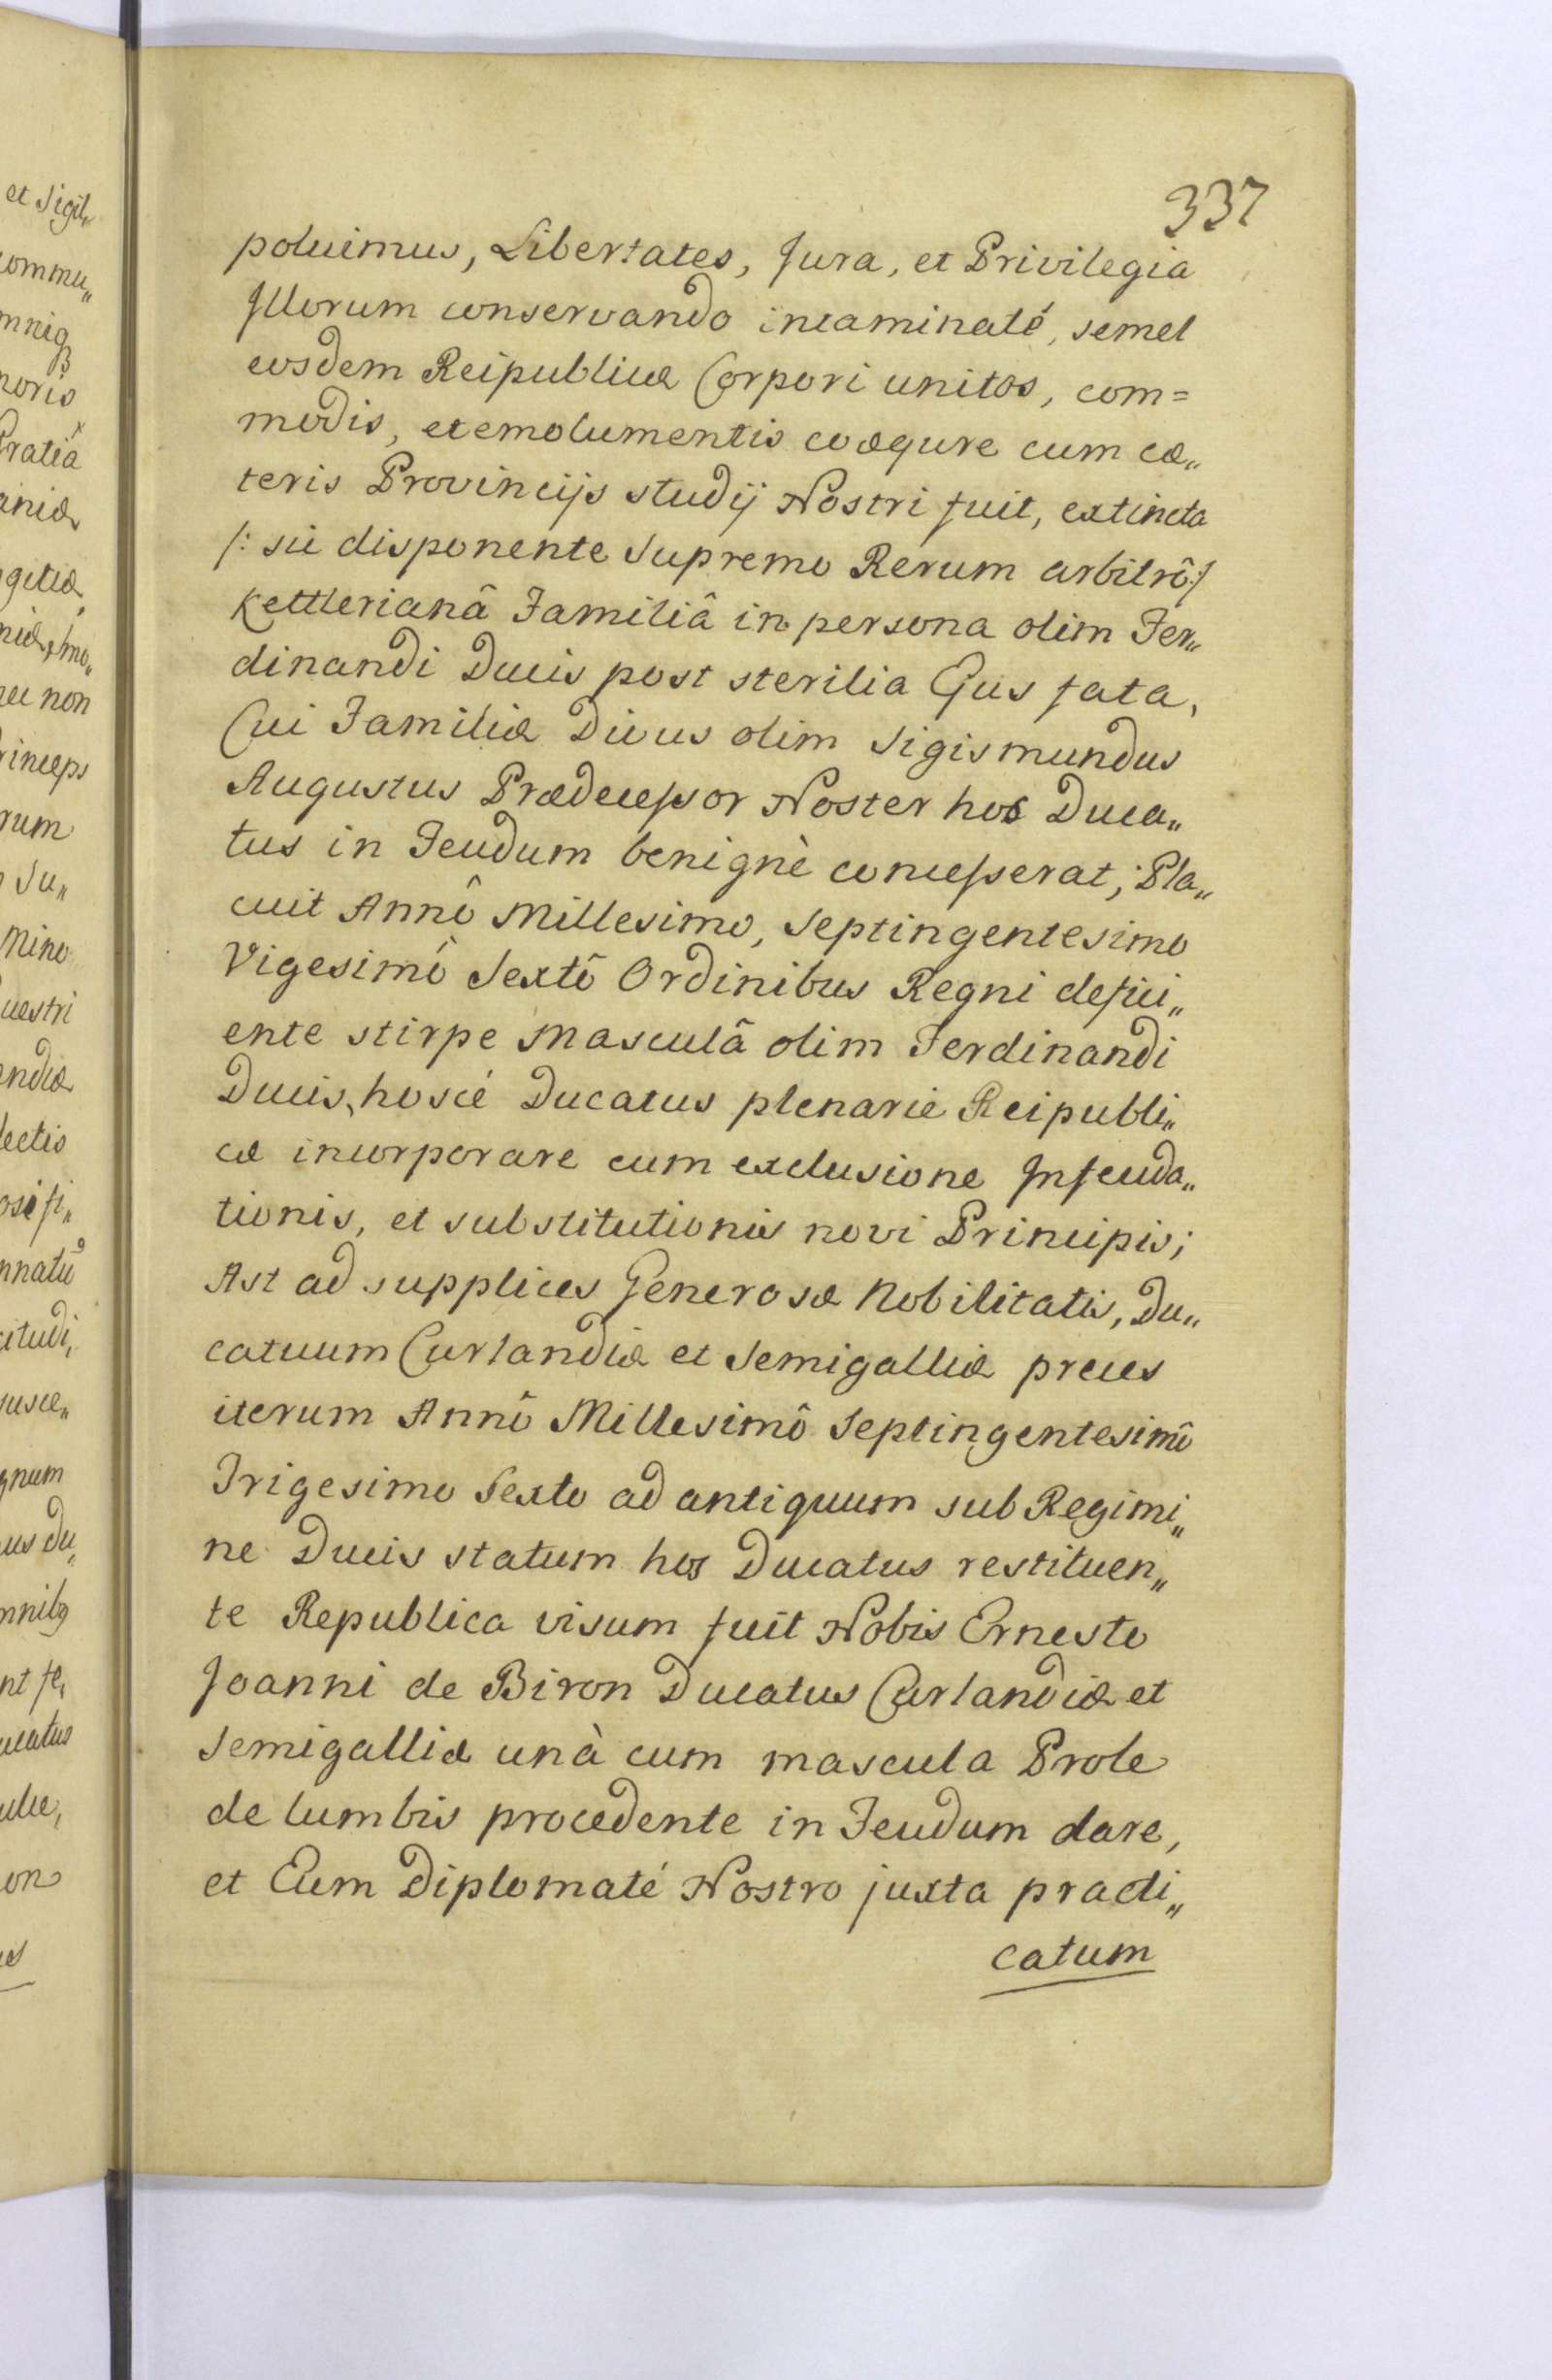 337
poluimus, Libertates, Jura, et Privilegia
Illorum conservando incaminaté, semel
eosdem Reipublicæ Corpori unitos, com=
modis, et emolumentis coæqure cum cæ„
teris Provincijs studij Nostri fuit, extincta
/: sic disponente Supremo Rerum arbitrô :/
Kettlerianâ Familiâ in persona olim Fer„
dinandi Ducis post sterilia Ejus fata,
Cui Familiæ Divus olim Sigismundus
Augustus Prædecessor Noster hos Duca„
tus in Feudum benignè concesserat; Pla„
cuit Annô Millesimo, Septingentesimo
Vigesimô Sextô Ordinibus Regni defici„
ente stirpe Masculâ olim Ferdinandi
Ducis, hoscé Ducatus plenarie Reipubli„
cæ incorporare cum exclusione Infeuda„
tionis, et substitutionis novi Principis;
Ast ad supplices Generosæ Nobilitatis, Du„
catuum Curlandiæ et Semigalliæ preces
iterum Annô Millesimô Septingentesimô
Trigesimo Sexto ad antiquum sub Regimi„
ne Ducis statum hos Ducatus restituen„
te Republica visum fuit Nobis Ernesto
Joanni de Biron Ducatus Curlandiæ et
Semigalliæ unà cum mascula Prole
de lumbis procedente in Feudum dare,
et Eum Diplomaté Nostro juxta prædi„
catum